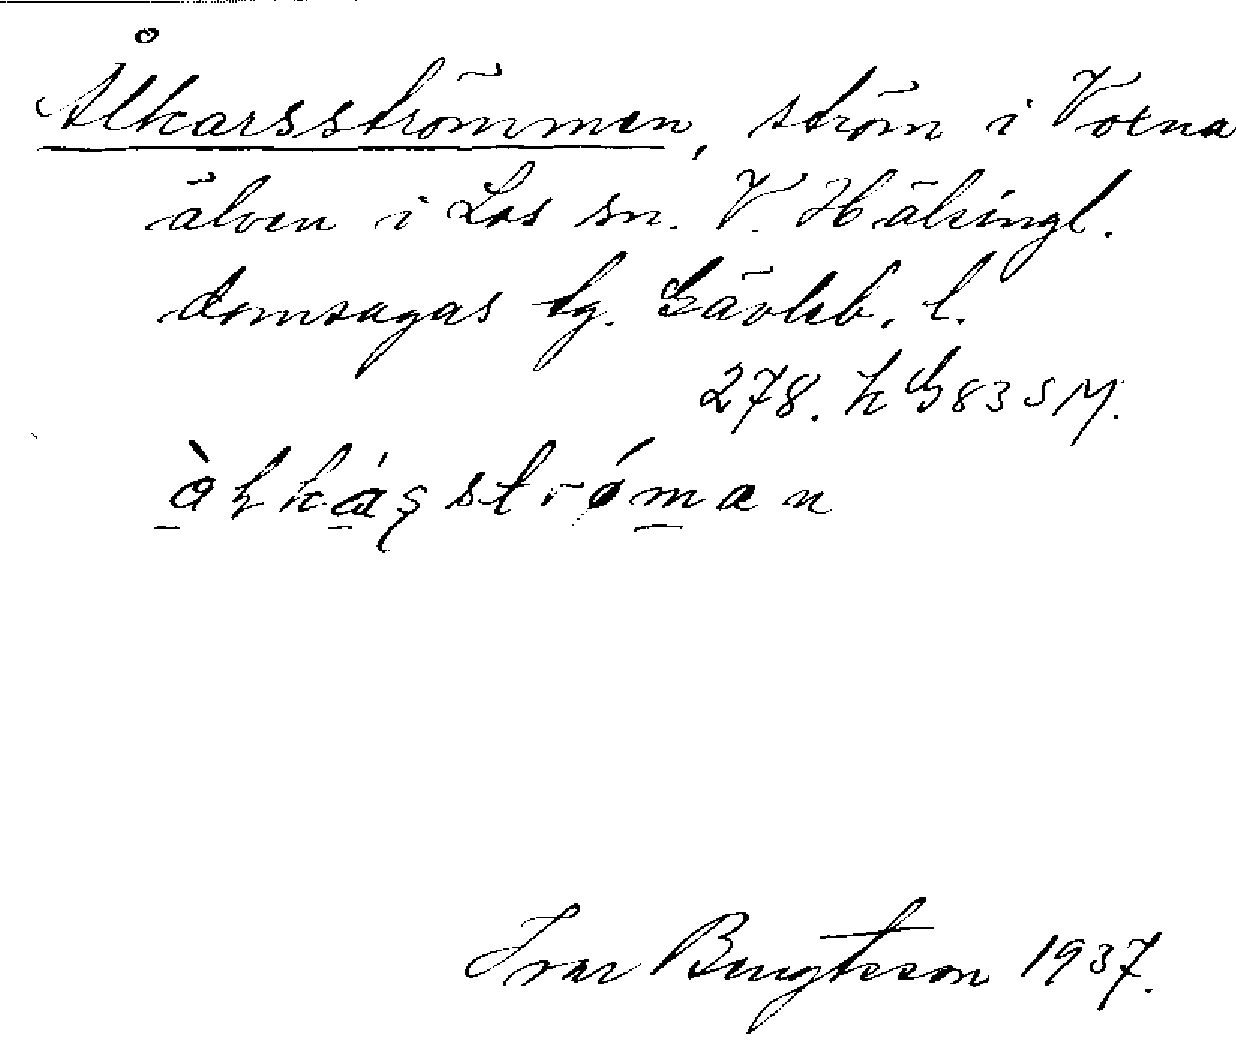 Ålkarsströmmen, ström i Voxna
älven i Los sn. V. Hälsingl.
domsagas tg. Gävleb. l.
278. h G 83 SM.
Ivar Bengtsson 1937.